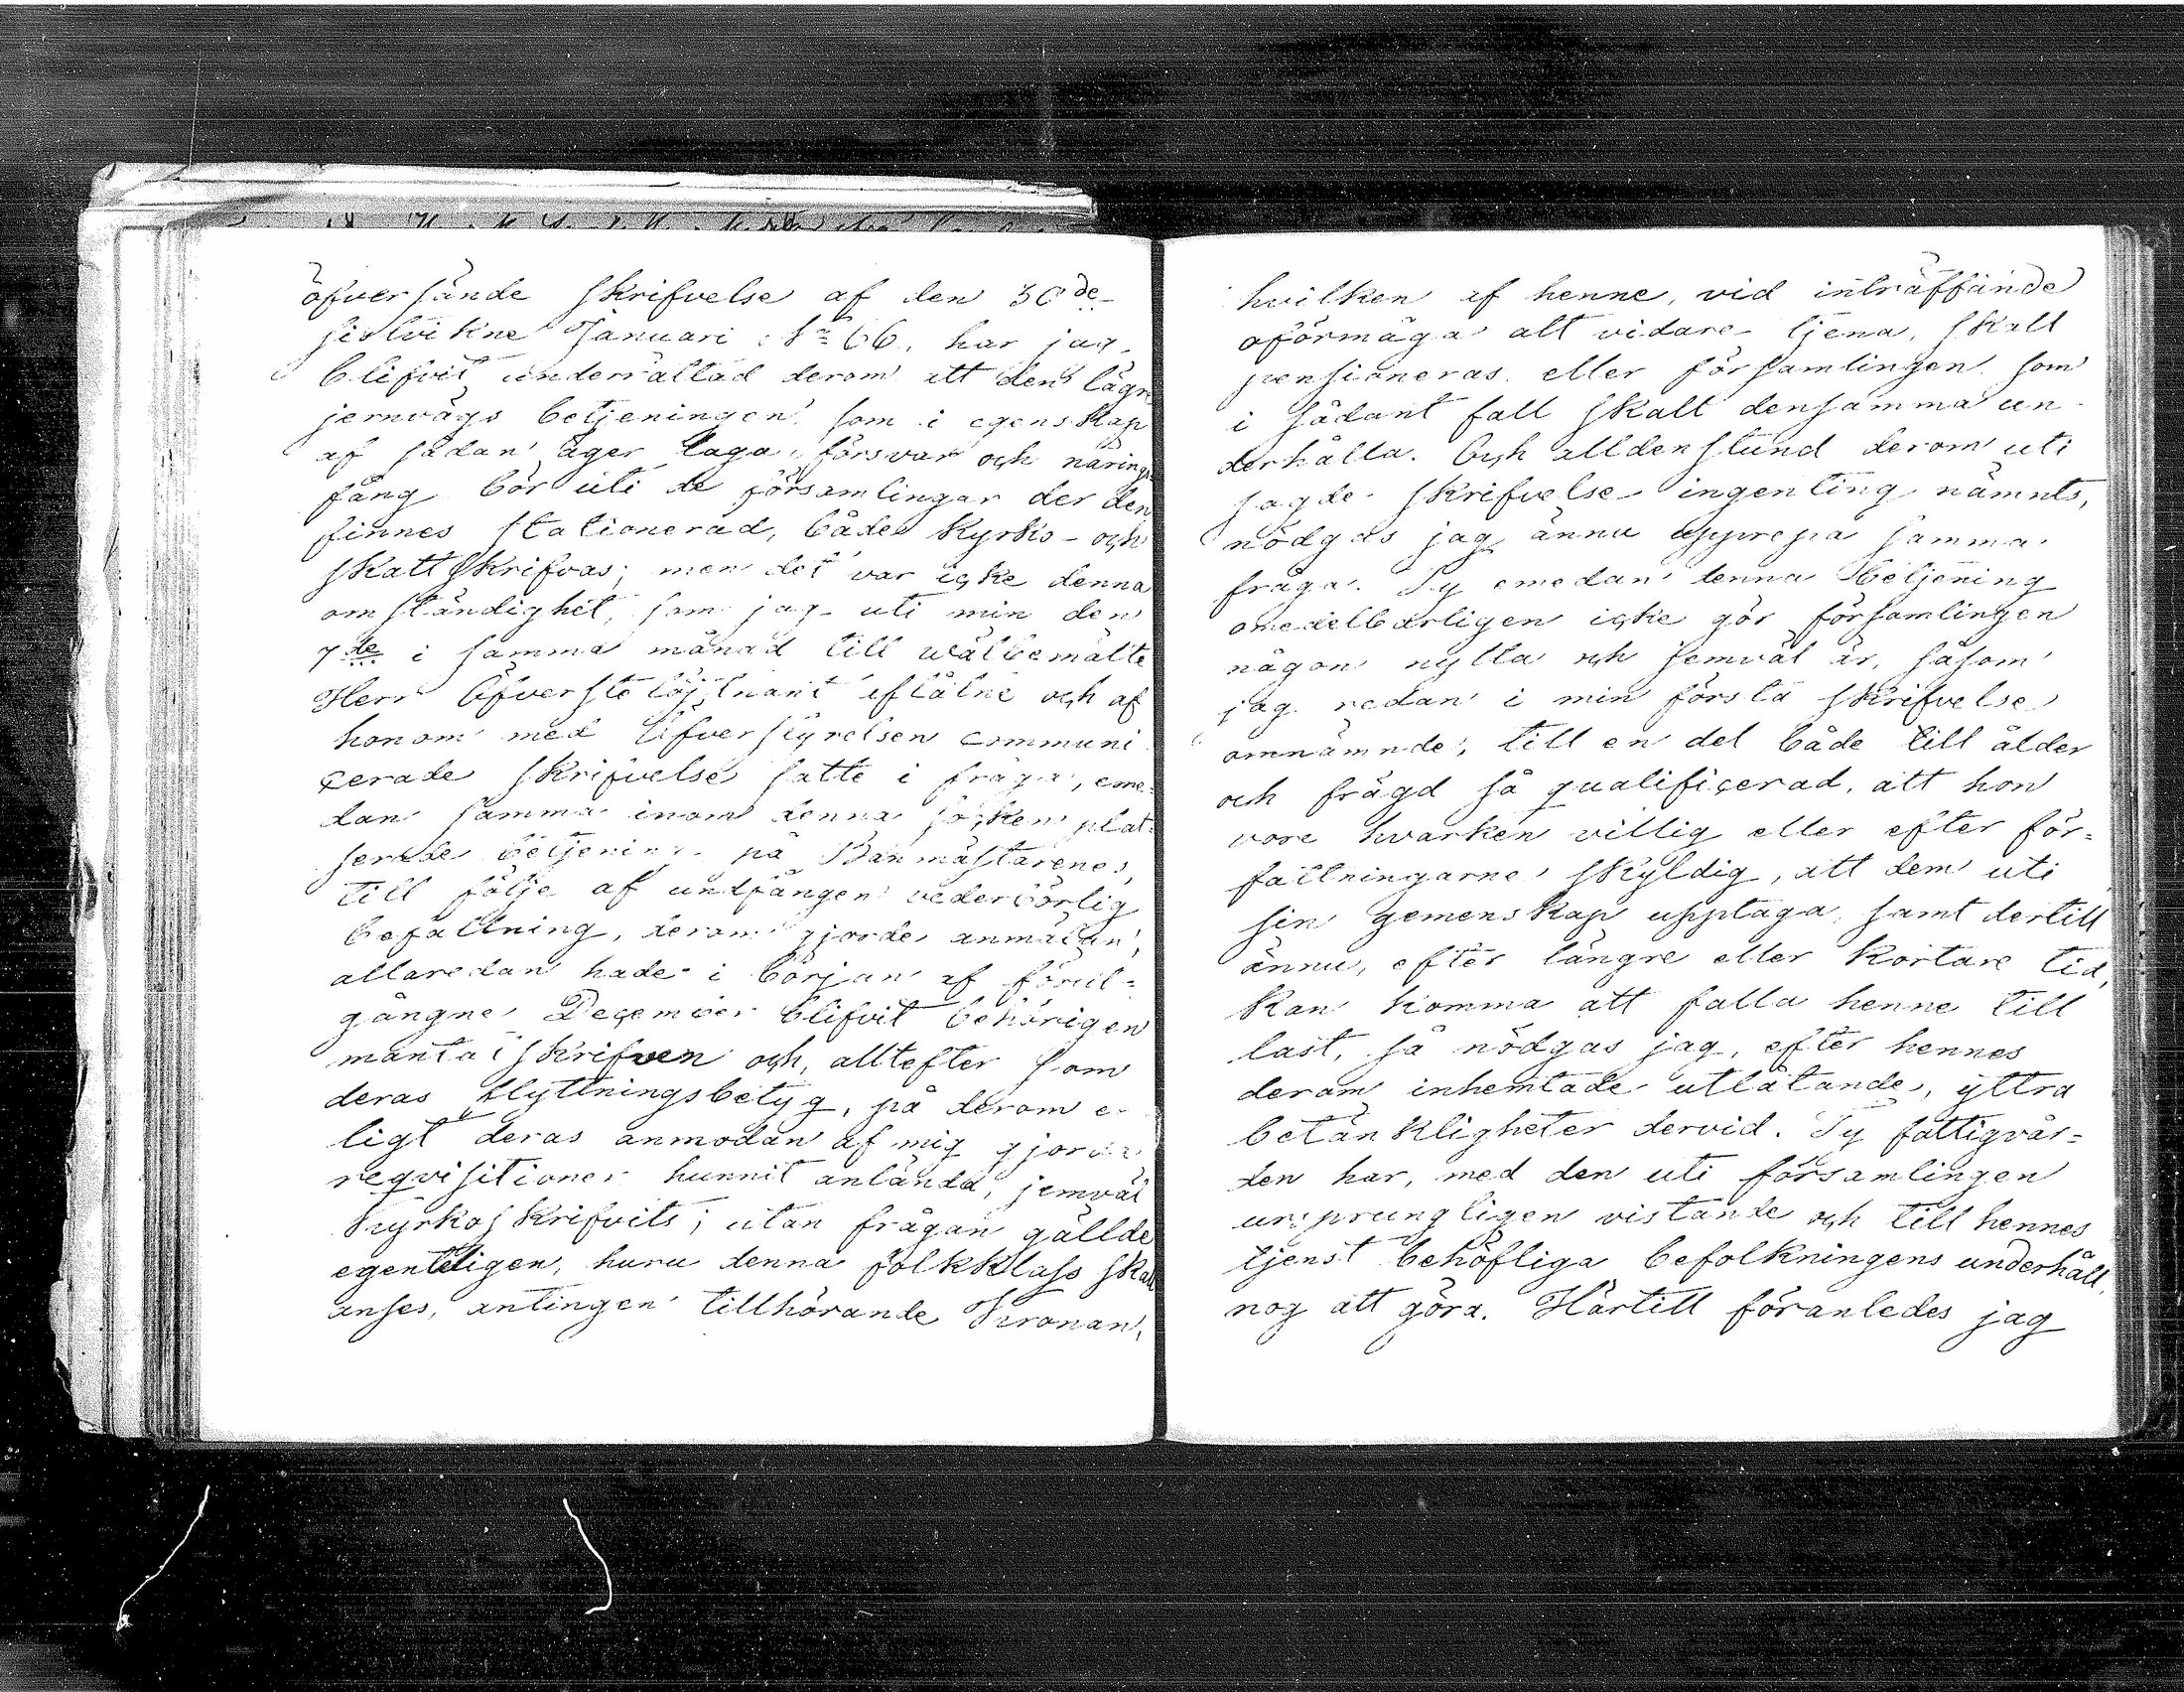 öfversände skrifvelse af den 30de
sistvikne Januari No 66, har jag
blifvit underrättad derom att den lägre
jernvägs betjeningen som i egenskap
af sådan äger laga försvar och närings
fång bör uti de församlingar der den
finnes stationerad, både kyrko- och
skattskrifvas; men det var icke denna
omständighet, som jag uti min den
7de i samma månad till wälbemälte
Herr Öfverstelöjtnant aflåtne och af
honom med Öfverstyrelsen communi
cerade skrifvelse satte i fråga, eme=
dan samma inom denna socken plat=
serade betjening på Banmästarenes,
till följe af undfången vederbörlig
befallning, derom gjorde anmälan,
allaredan hade i början af förut=
gångne December blifvit behörigen
mantalskrifven och, alltefter som
deras flyttningsbetyg, på derom e-
ligt deras anmodan af mig gjorda
reqvisitioner hunnit anlända, jemväl
kyrkoskrifvits; utan frågan gällde
egenteligen, huru denna folkklass skall
anses, antingen tillhörande Kronan,
hvilken af henne, vid inträffande
oförmåga att vidare tjena, skall
pensioneras eller församlingen som
i sådant fall skall densamma un-
derhålla. Och alldenstund derom uti
sagde skrifvelse ingenting nämnts,
nödgas jag ännu upprepa samma
fråga. Ty emedan denna betjening
omedelbarligen icke gör församlingen
någon nytta och jemväl är, såsom
jag redan i min första skrifvelse
omnämnde, till en del både till ålder
och frägd så qualificerad, att hon
vore hvarken villig eller efter för=
fattningarne skyldig, att dem uti
sin gemenskap upptaga, samt dertill
ännu, efter längre eller kortare tid,
kan komma att falla henne till
last, så nödgas jag, efter hennes
derom inhemtade utlåtande, yttra
betänkligheter dervid. Ty fattigvår=
den har, med den uti församlingen
ursprungligen vistande och till hennes
tjenst behöfliga befolkningens underhåll,
nog att göra. Härtill föranledes jag